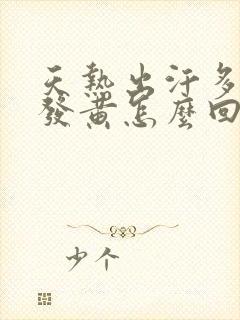 天熱出汗多
發黃怎麼回
少个